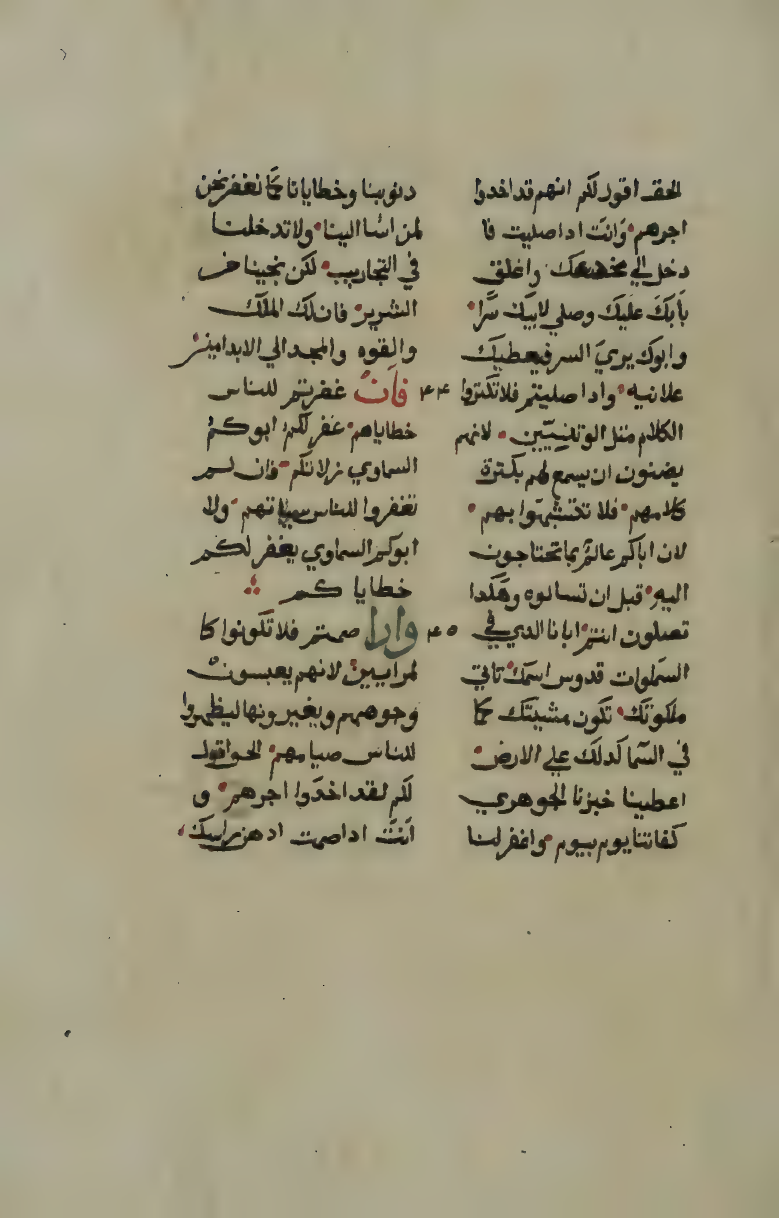 الحق اقول لكم انهم قد اخدوا
اجرهم وانت ادا صليت فا
دخل الي مخدعك واغلق
بابك عليك وصلي لابيك سرا
وابوك يري السر فيعطيك
علانيه وادا صليتم فلا تكتروا
الكلام متل الوتنيين لانهم
يضنون ان يسمع لهم بكترة
كلامهم فلا تتشبهوا بهم
لان اباكم عالم بما تحتاجون
اليه قبل ان تسالوه وهكدا
تصلون انتم ابانا الدي في
السماوات قدوس اسمك تاتي
ملكوتك تكون مشيتك كما
في السما كدلك علي الارض
اعطينا خبزنا الجوهري
كفاتنا يوم بيوم واغفر لنا
دنوبنا وخطايانا كما نغفر نحن
لمن اسا الينا ولا تدخلنا
في التجاريب لكن نجينا من
الشرير فان لك الملك
والقوه والمجد الي الابد امين
٤٤ فان غفرتم للناس
خطاياهم غفر لكم ابوكم
السماوي زلاتكم فان لم
تغفروا للناس سياتهم ولا
ابوكم السماوي يغفر لكم
خطاياكم
٤٥ وادا صمتم فلا تكونوا كا
لمراييين لانهم يعبسون
وجوههم ويغيرونها ليظهروا
للناس صيامهم الحق اقول
لكم لقد اخدوا اجرهم و
انت ادا صمت ادهن راسك